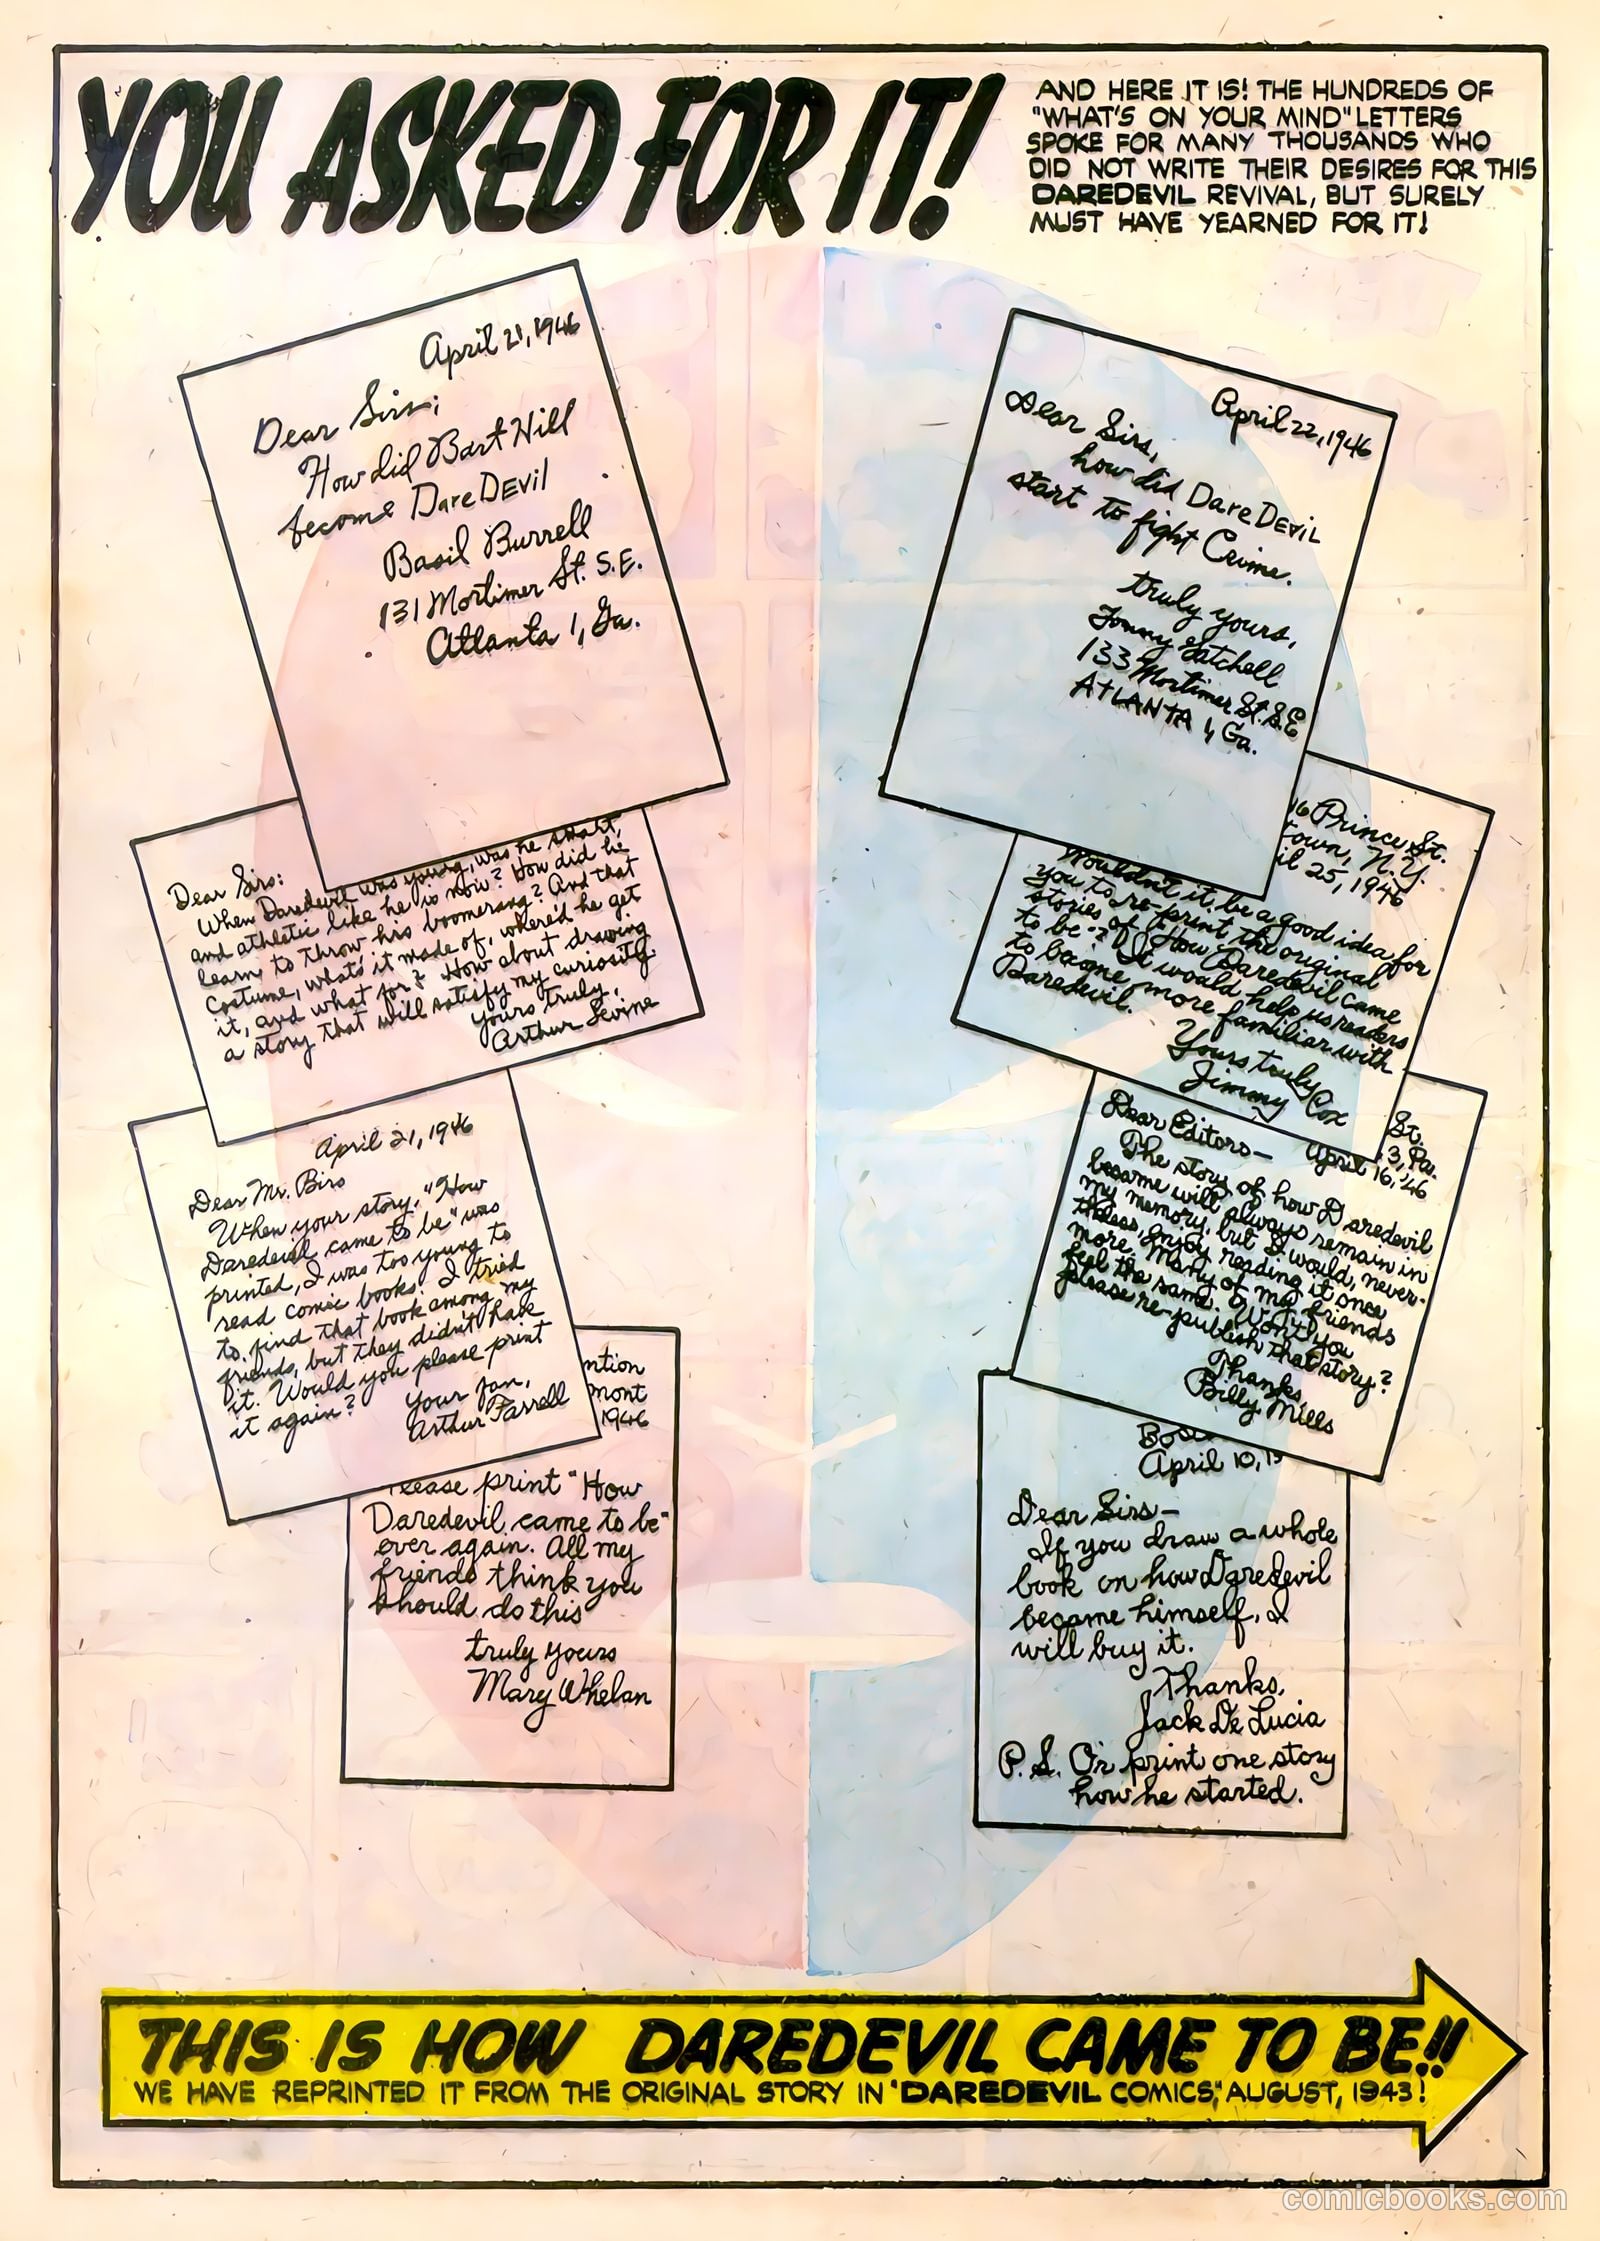 YOU ASKED FOR IT!
AND HERE IT IS! THE HUNDREDS OF
"WHAT'S ON YOUR MIND" LETTERS
SPOKE FOR MANY THOUSANDS WHO
DID NOT WRITE THEIR DESIRES FOR THIS
DAREDEVIL REVIVAL, BUT SURELY
MUST HAVE YEARNED FOR IT!
April 21, 1946
Dear Sirs;
How did Bart Hill
become DareDEvil
Basil Burrell
131 Mortimer St. S.E.
Atlanta 1, Ga.
Dear Sirs:
When Daredevil was young, was he smart,
and athletic like he is now? How did he
learn to throw his boomerang? And that
costume, what's it made of, where'd he get
it, and what for? How about drawing
a story that will satisfy my curiosity.
yours truly,
Arthur Levine
April 21, 1946
Dear Mr. Biro
When your story, "How
Daredevil came to be" was
printed, I was too young to
read comic books. I tried
to find that book among my
friends, but they didn't have
it. Would you please print
it again?
your fan,
Arthur Farrell
ntion
mont
1946
lease print "How
Daredevil came to be"
over again. All my
friends think you
should do this
truly yours
Mary Whelan
April 22, 1946
Dear Sirs,
how did DareDEvIL
start to fight Crime.
truly yours,
Tommy Gatchell
133 Mortimer St. S.E
ATLANTA 1, Ga.
16 Prince St.
town, N.Y.
il 25, 1946
Wouldn't it be a good idea for
you to re-print the original
stories of "How Daredevil came
to be"? It would help us readers
to become more familiar with
Daredevil.
Yours truly
Jimmy Cox
St.
3, Pa.
April 16, '46
Dear Editors—
The story of how Daredevil
became will always remain in
my memory, but I would, never-
theless, enjoy reading it once
more. Many of my friends
feel the same. Won't you
please re-publish that story?
Thanks,
Billy Mills
Bos
April 10, 19
Dear Sirs—
If you draw a whole
book on how Daredevil
became himself, I
will buy it.
Thanks,
Jack De Lucia
P.S. Or print one story
how he started.
THIS IS HOW DAREDEVIL CAME TO BE!!
WE HAVE REPRINTED IT FROM THE ORIGINAL STORY IN "DAREDEVIL COMICS," AUGUST, 1943!
comicbooks.com